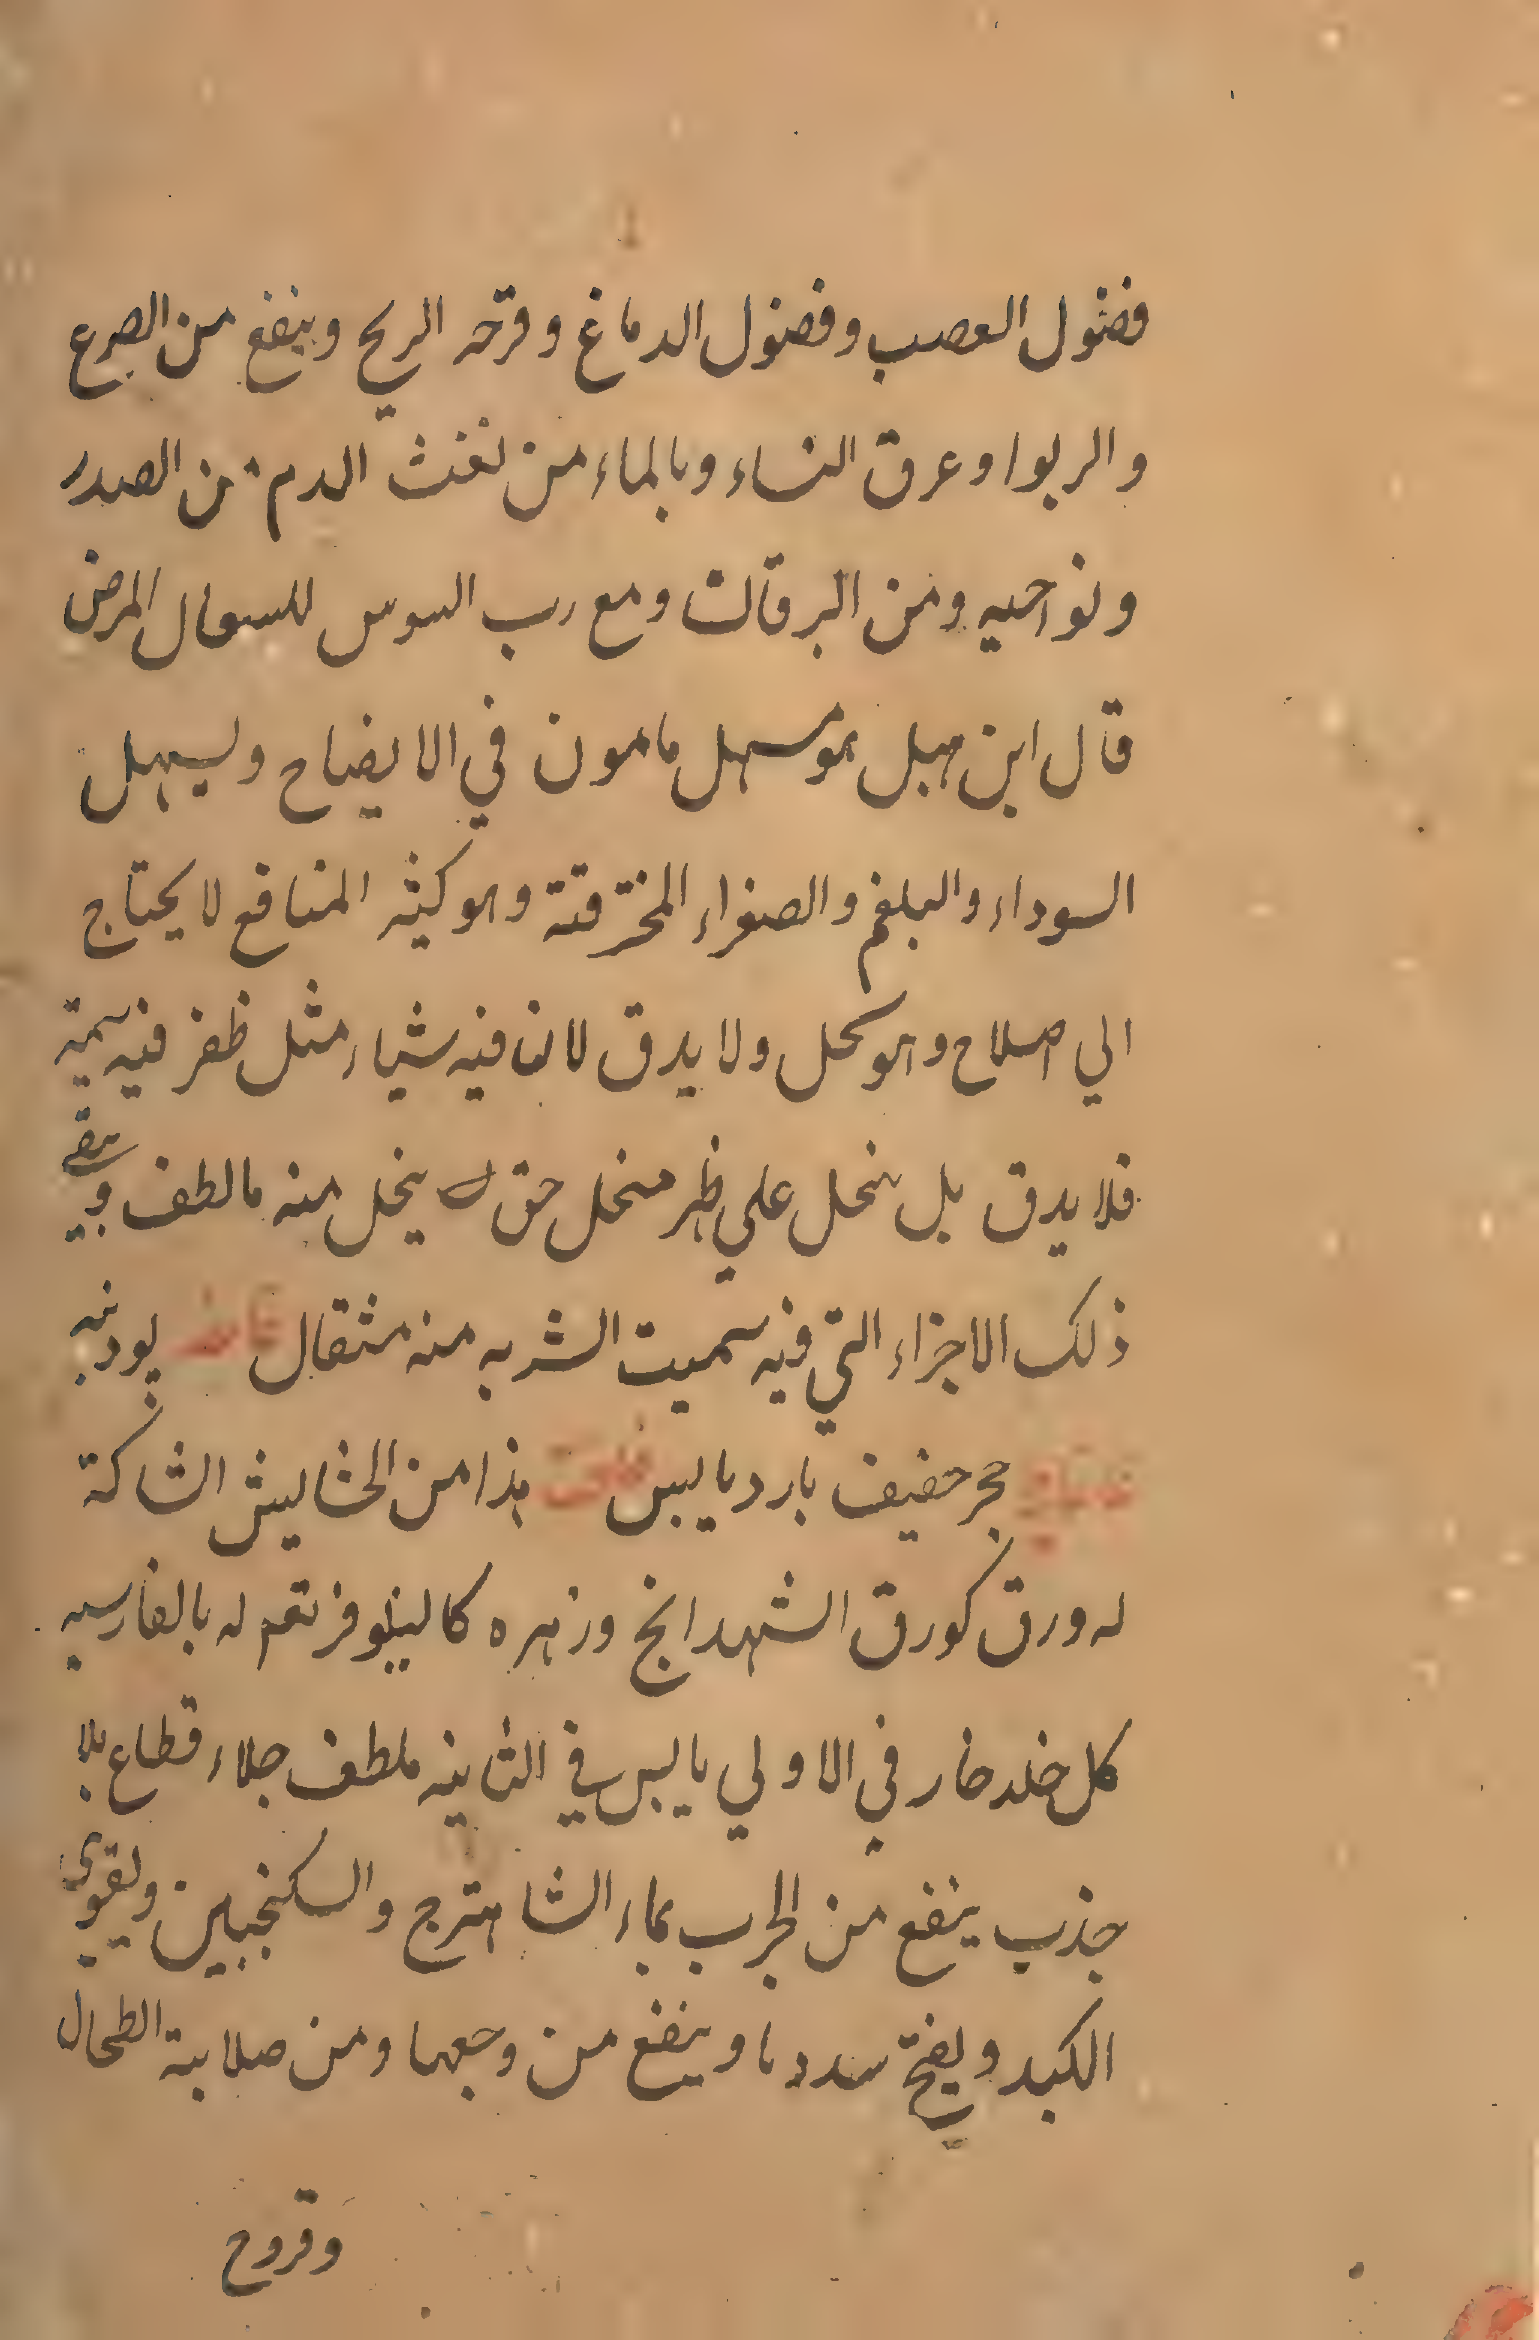 فضول العصب وفضول الدماغ وقرحه الريح وينفع من الصرع
والربوا وعرق النساء وبالماء من نفث الدم من الصدر
ونواحيه ومن اليرقان ومع رب السوس للسعال المرض
قال ابن هبل هو مسهل مامون في الايضاح ويسهل
السوداء والبلغم والصفراء المخترقتة وهو كثير المنافع لا يحتاج
الي اصلاح وهو كحل ولا يدق لان فيه شياء مثل ظفر فيه سمية
فلا يدق بل ينخل علي ظهر منخل حتى ينخل منه مالطف ويبقي
ذلك الاجزاء التي فيه سميت الشربه منه مثقال يودنيه
حجر خفيف بارد يابس هذا من الحشايش الشاكة
له ورق كورق الشهدانج وزهره كالينلوفر نعم له بالفارسيه
كل خلد حار في الاولي يابس في الثانيه ملطف جلاء قطاع بلا
جذب ينفع من الجرب بماء الشاهترج والسكنجبين ويقوي
الكبد ويفتح سددها وينفع من وجعها ومن صلابة الطحال
وقروح